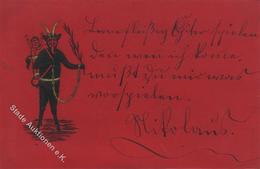 Lerne fleißig Zither spielen
den wen ich komme,
mußt du mir was
vorspielen.
Nikolaus.
Stade Auktionen e.K.